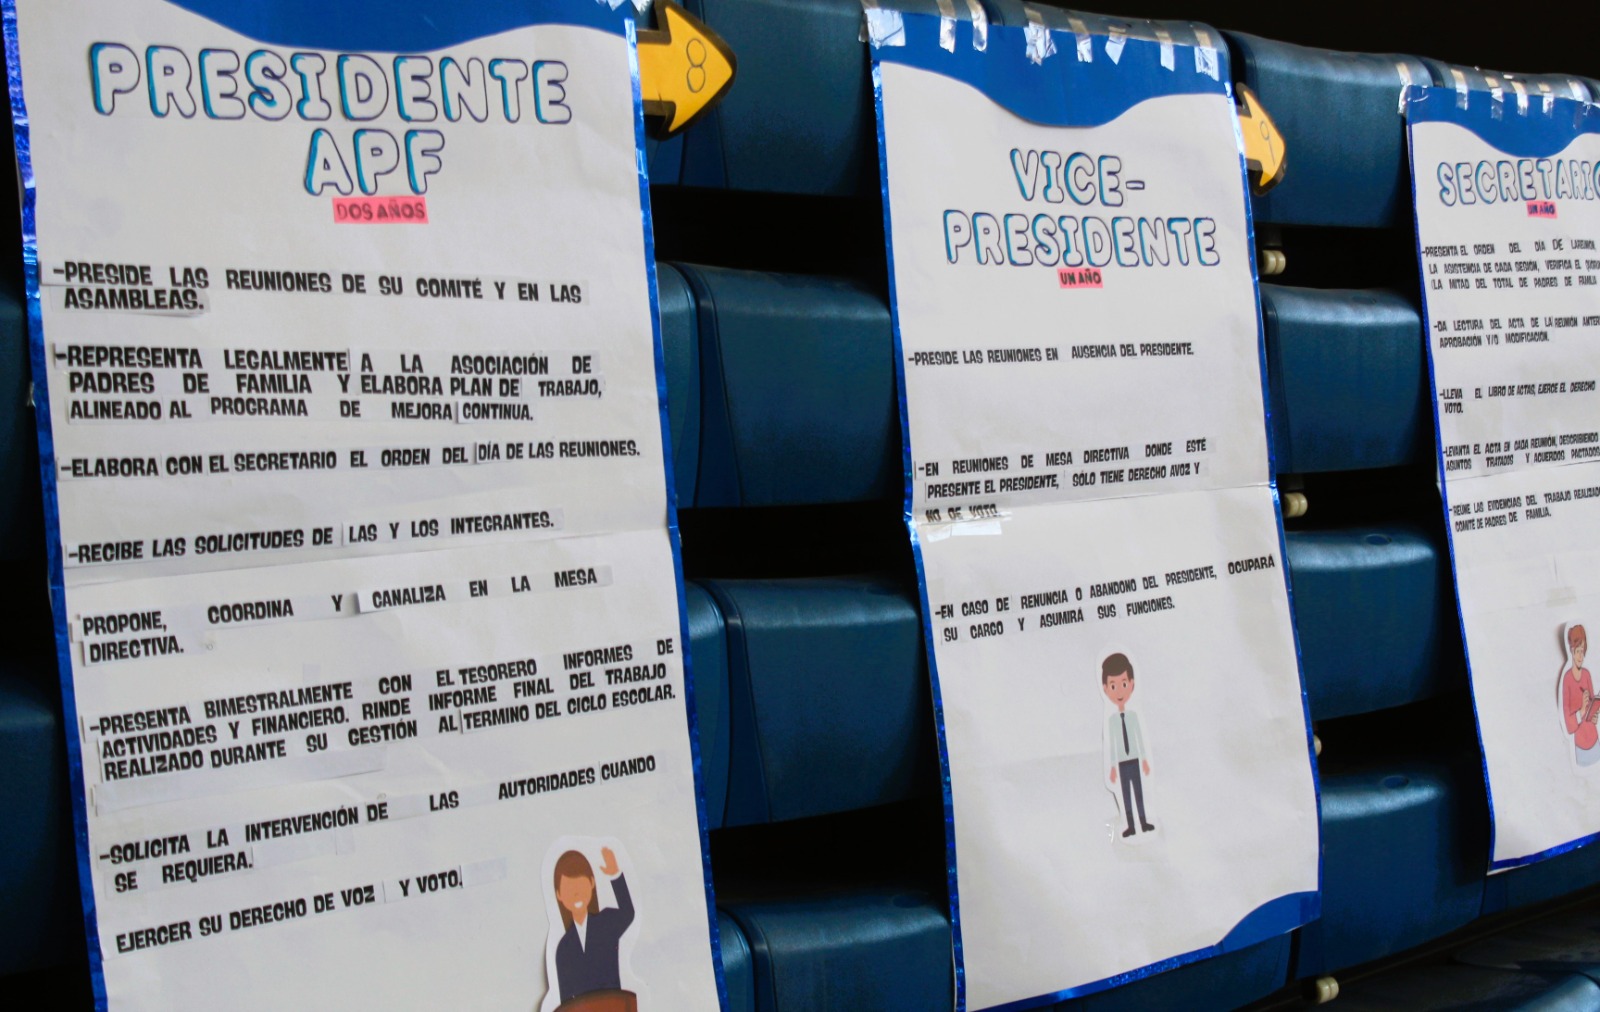 PRESIDENTE
APF
DOS AÑOS
-PRESIDE LAS REUNIONES DE SU COMITÉ Y EN LAS
ASAMBLEAS.
-REPRESENTA LEGALMENTE A LA ASOCIACIÓN DE
PADRES DE FAMILIA Y ELABORA PLAN DE TRABAJO,
ALINEADO AL PROGRAMA DE MEJORA CONTINUA.
-ELABORA CON EL SECRETARIO EL ORDEN DEL DÍA DE LAS REUNIONES.
-RECIBE LAS SOLICITUDES DE LAS Y LOS INTEGRANTES.
PROPONE, COORDINA Y CANALIZA EN LA MESA
DIRECTIVA.
-PRESENTA BIMESTRALMENTE CON EL TESORERO INFORMES DE
ACTIVIDADES Y FINANCIERO. RINDE INFORME FINAL DEL TRABAJO
REALIZADO DURANTE SU GESTIÓN AL TERMINO DEL CICLO ESCOLAR.
-SOLICITA LA INTERVENCIÓN DE LAS AUTORIDADES CUANDO
SE REQUIERA.
EJERCER SU DERECHO DE VOZ Y VOTO.
8
VICE-
PRESIDENTE
UN AÑO
-PRESIDE LAS REUNIONES EN AUSENCIA DEL PRESIDENTE.
-EN REUNIONES DE MESA DIRECTIVA DONDE ESTÉ
PRESENTE EL PRESIDENTE, SÓLO TIENE DERECHO AVOZ Y
NO DE VOTO.
-EN CASO DE RENUNCIA O ABANDONO DEL PRESIDENTE, OCUPARÁ
SU CARGO Y ASUMIRÁ SUS FUNCIONES.
9
SECRETARIO
UN AÑO
-PRESENTA EL ORDEN DEL DÍA DE LA REUNIÓN,
LA ASISTENCIA DE CADA SESIÓN, VERIFICA EL
(LA MITAD DEL TOTAL DE PADRES DE FAMILIA
-DA LECTURA DEL ACTA DE LA REUNIÓN
APROBACIÓN Y/O MODIFICACIÓN.
-LLEVA EL LIBRO DE ACTAS, EJERCE EL DERECHO
VOTO.
-LEVANTA EL ACTA EN CADA REUNIÓN, DESCRIBIENDO
ASUNTOS TRATADOS Y ACUERDOS PACTADOS
-REÚNE LAS EVIDENCIAS DEL TRABAJO
COMITÉ DE PADRES DE FAMILIA.